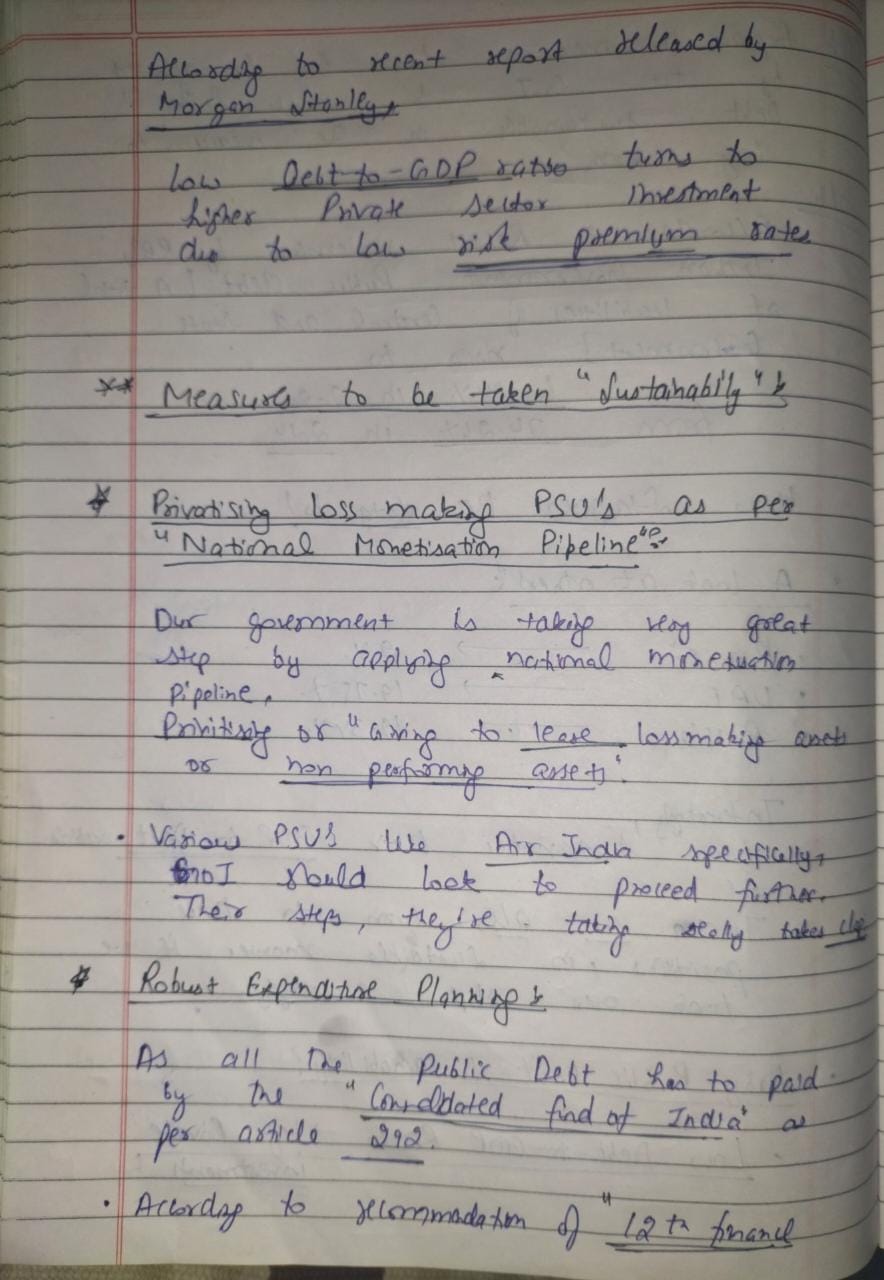 According to recent report released by
Morgan Stanley,
low Debt-to-GDP ratio turns to
higher Private sector Investment
due to low risk premium rates
** Measures to be taken "Sustainabily" :
* Privatising loss making PSU's as per
"National Monetisation Pipeline":-
Our government is taking very great
step by applying national monetisation
Pipeline,
Privitising or "Giving to lease lossmaking assets
or non performing assets".
• Various PSU's like Air India specifically,
GOI should look to proceed further.
Their steps, they're taking really takes
* Robust Expenditure Planning :
As all the Public Debt has to paid
by the "Consolidated fund of India" as
per article 292.
• According to recommodation of "12th financl